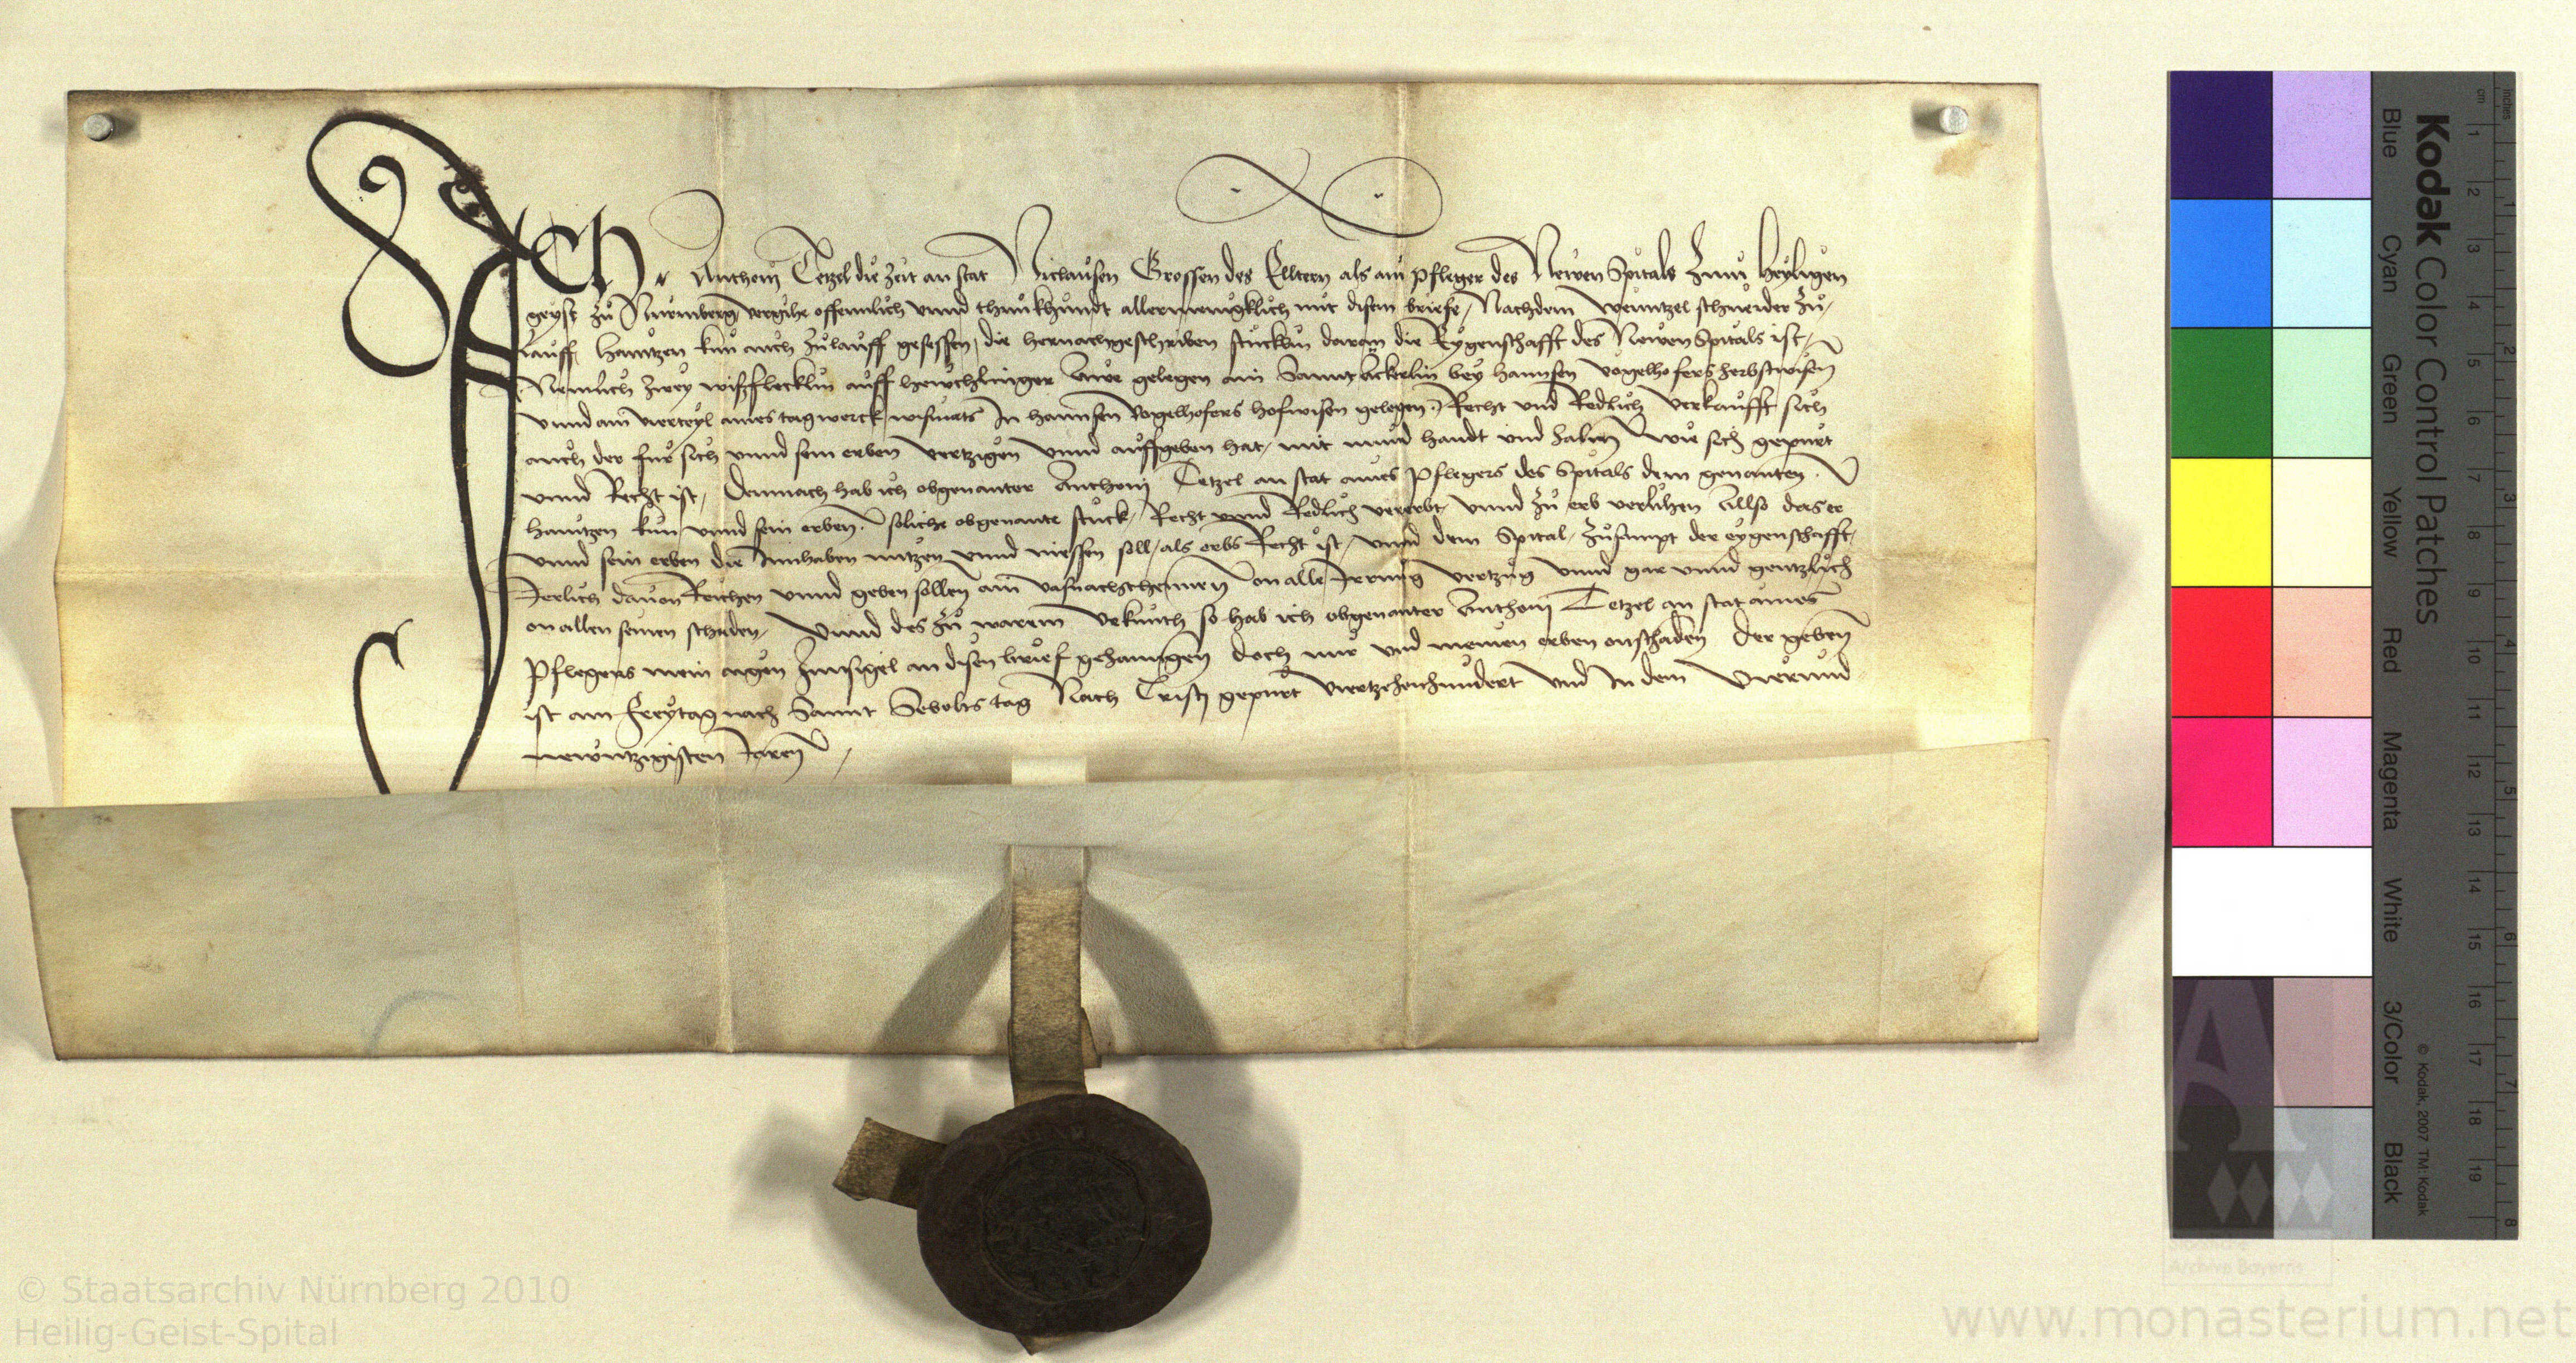 ICH Anthonj Tetzel die zeit an stat Niclausen Grossen des Elltern als ain pfleger des Newen Spitals Zum heyligen
geyst zu Nuremberg vergihe offennlich vnnd thun khundt allermenigklich mit disem briefe / Nachdem Weintzel schneider zu /
Lauff / Hanntzen kun auch zu lauff gesessen / die hernachgeschriben stucklin daran die Eygenschafft des Newen Spitals ist /
Nemlich zwey wißflecklin auff gelegen am Sannt ackerlin bey hannsen vogelhofers herbstwisen
vnnd ain vierteyl aines tagwerck wißmats In hannsen vogelhofers hofwisen gelegen Recht vnd Redlich verkaufft sich
auch der fur sich vnnd sein erben vertzigen vnnd auffgeben hat / mit mund handt vnd halm wie sich gepurt
vnnd Recht ist / Demnach hab ich obgenanter Anthonj Tetzel an stat aines pflegers des Spitals dem genanten
hanntzen kun vnnd sein erben soliche obgenante stuck / Recht vnnd Redlich vererbt / vnnd zu erb verlihen Allso das er
vnnd sein erben die Innhaben nutzen vnnd niessen soll / als erbs Recht ist / vnnd dem Spital / zusampt der eygenschafft /
Jerlich dauon Reichen vnnd geben sollen ain vasnachthennen on alle Jrrung vertzug vnnd gar vnnd gentzlich
on allen seinen schaden / Vnnd des zu warem vrkunth so hab ich obgenanter Anthonj Tetzel an stat aines
pflegers mein aigen Innsigel an disen brief gehanngen doch mir vnd meinen erben onschaden Der geben
ist am Freytag nach Sannt Sebolts tag Nach Cristj gepurt viertzehenhundert vnd In dem Vierund
newntzigisten Jaren /
© Staatsarchiv Nürnberg 2010
Heilig-Geist-Spital
www.monasterium.net
Kodak Color Control Patches
Blue Cyan Green Yellow Red Magenta White 3/Color Black
© Kodak, 2007 TM: Kodak
cm 1 2 3 4 5 6 7 8 9 10 11 12 13 14 15 16 17 18 19
inches 1 2 3 4 5 6 7 8
Archive Bayerns